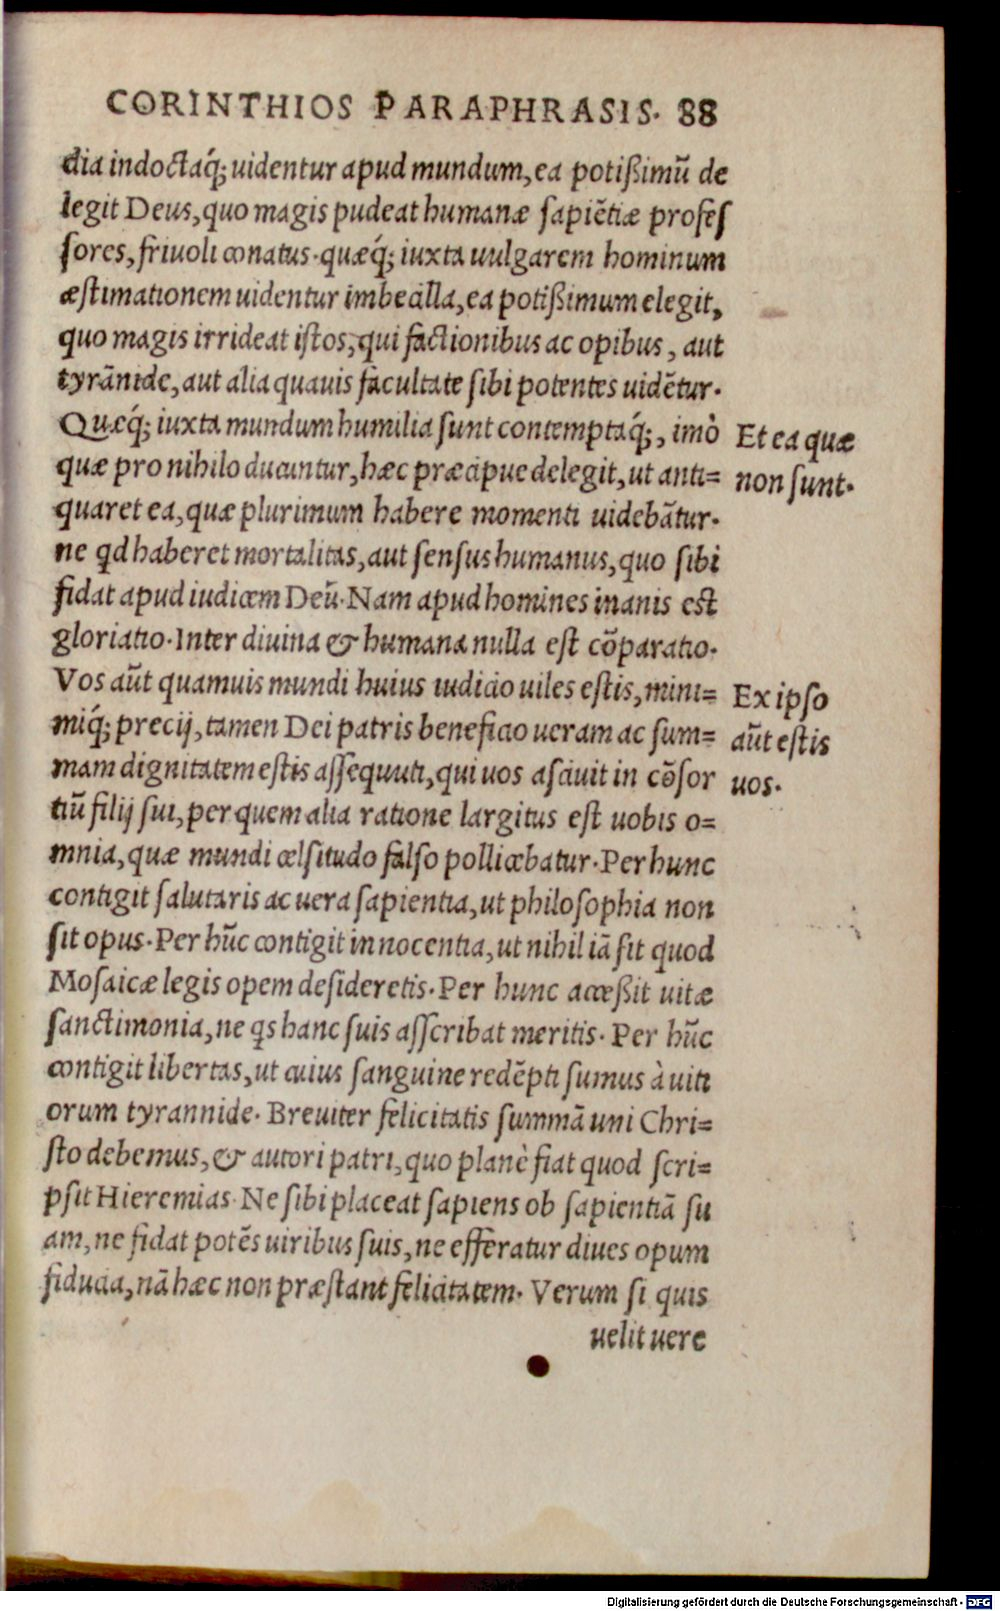 CORINTHIOS PARAPHRASIS. 88
dia indoctaq́; uidentur apud mundum, ea potißimũ de
legit Deus, quo magis pudeat humanæ sapiẽtiæ profes
sores, friuoli conatus. quæq́; iuxta uulgarem hominum
æstimationem uidentur imbecilla, ea potißimum elegit,
quo magis irrideat istos, qui factionibus ac opibus, aut
tyrãnide, aut alia quauis facultate sibi potentes uidẽtur.
Quæq́; iuxta mundum humilia sunt contemptaq́;, imò
quæ pro nihilo ducuntur, hæc præcipue delegit, ut anti=
quaret ea, quæ plurimum habere momenti uidebãtur.
ne qd haberet mortalitas, aut sensus humanus, quo sibi
fidat apud iudicem Deũ. Nam apud homines inanis est
gloriatio. Inter diuina & humana nulla est cõparatio.
Vos aũt quamuis mundi huius iudicio uiles estis, mini=
miq́; precij, tamen Dei patris beneficio ueram ac sum=
mam dignitatem estis assequuti, qui uos asciuit in cõsor
tiũ filij sui, per quem alia ratione largitus est uobis o=
mnia, quæ mundi celsitudo falso pollicebatur. Per hunc
contigit salutaris ac uera sapientia, ut philosophia non
sit opus. Per hũc contigit innocentia, ut nihil iã sit quod
Mosaicæ legis opem desideretis. Per hunc acceßit uitæ
sanctimonia, ne qs hanc suis asscribat meritis. Per hũc
contigit libertas, ut cuius sanguine redẽpti sumus à uiti
orum tyrannide. Breuiter felicitatis summã uni Chri=
sto debemus, & autori patri, quo planè fiat quod scri=
psit Hieremias. Ne sibi placeat sapiens ob sapientiã su
am, ne fidat potẽs uiribus suis, ne efferatur diues opum
fiducia, nã hæc non præstant felicitatem. Verum si quis
uelit uere
Et ea quæ
non sunt.
Ex ipso
aũt estis
uos.
Digitalisierung gefördert durch die Deutsche Forschungsgemeinschaft - DFG